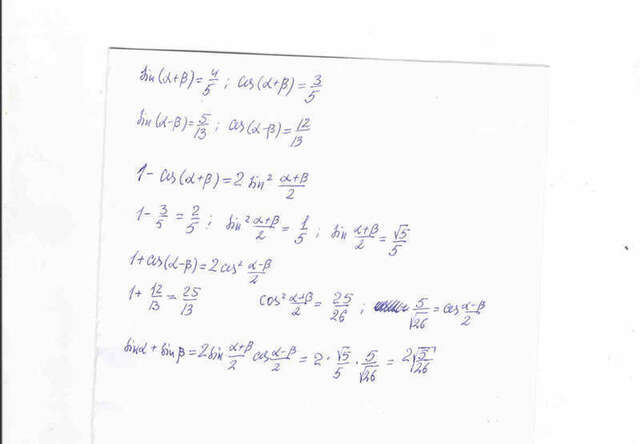 sin(α+β)=4/5; cos(α+β)=3/5
sin(α-β)=5/13; cos(α-β)=12/13
1-cos(α+β)=2 sin² (α+β)/2
1-3/5=2/5; sin² (α+β)/2=1/5; sin (α+β)/2=√5/5
1+cos(α-β)=2cos² (α-β)/2
1+12/13=25/13 cos² (α+β)/2=25/26; 5/√26=cos (α-β)/2
sinα+sinβ=2sin (α+β)/2 cos (α-β)/2=2·√5/5·5/√26=2√(5/26)